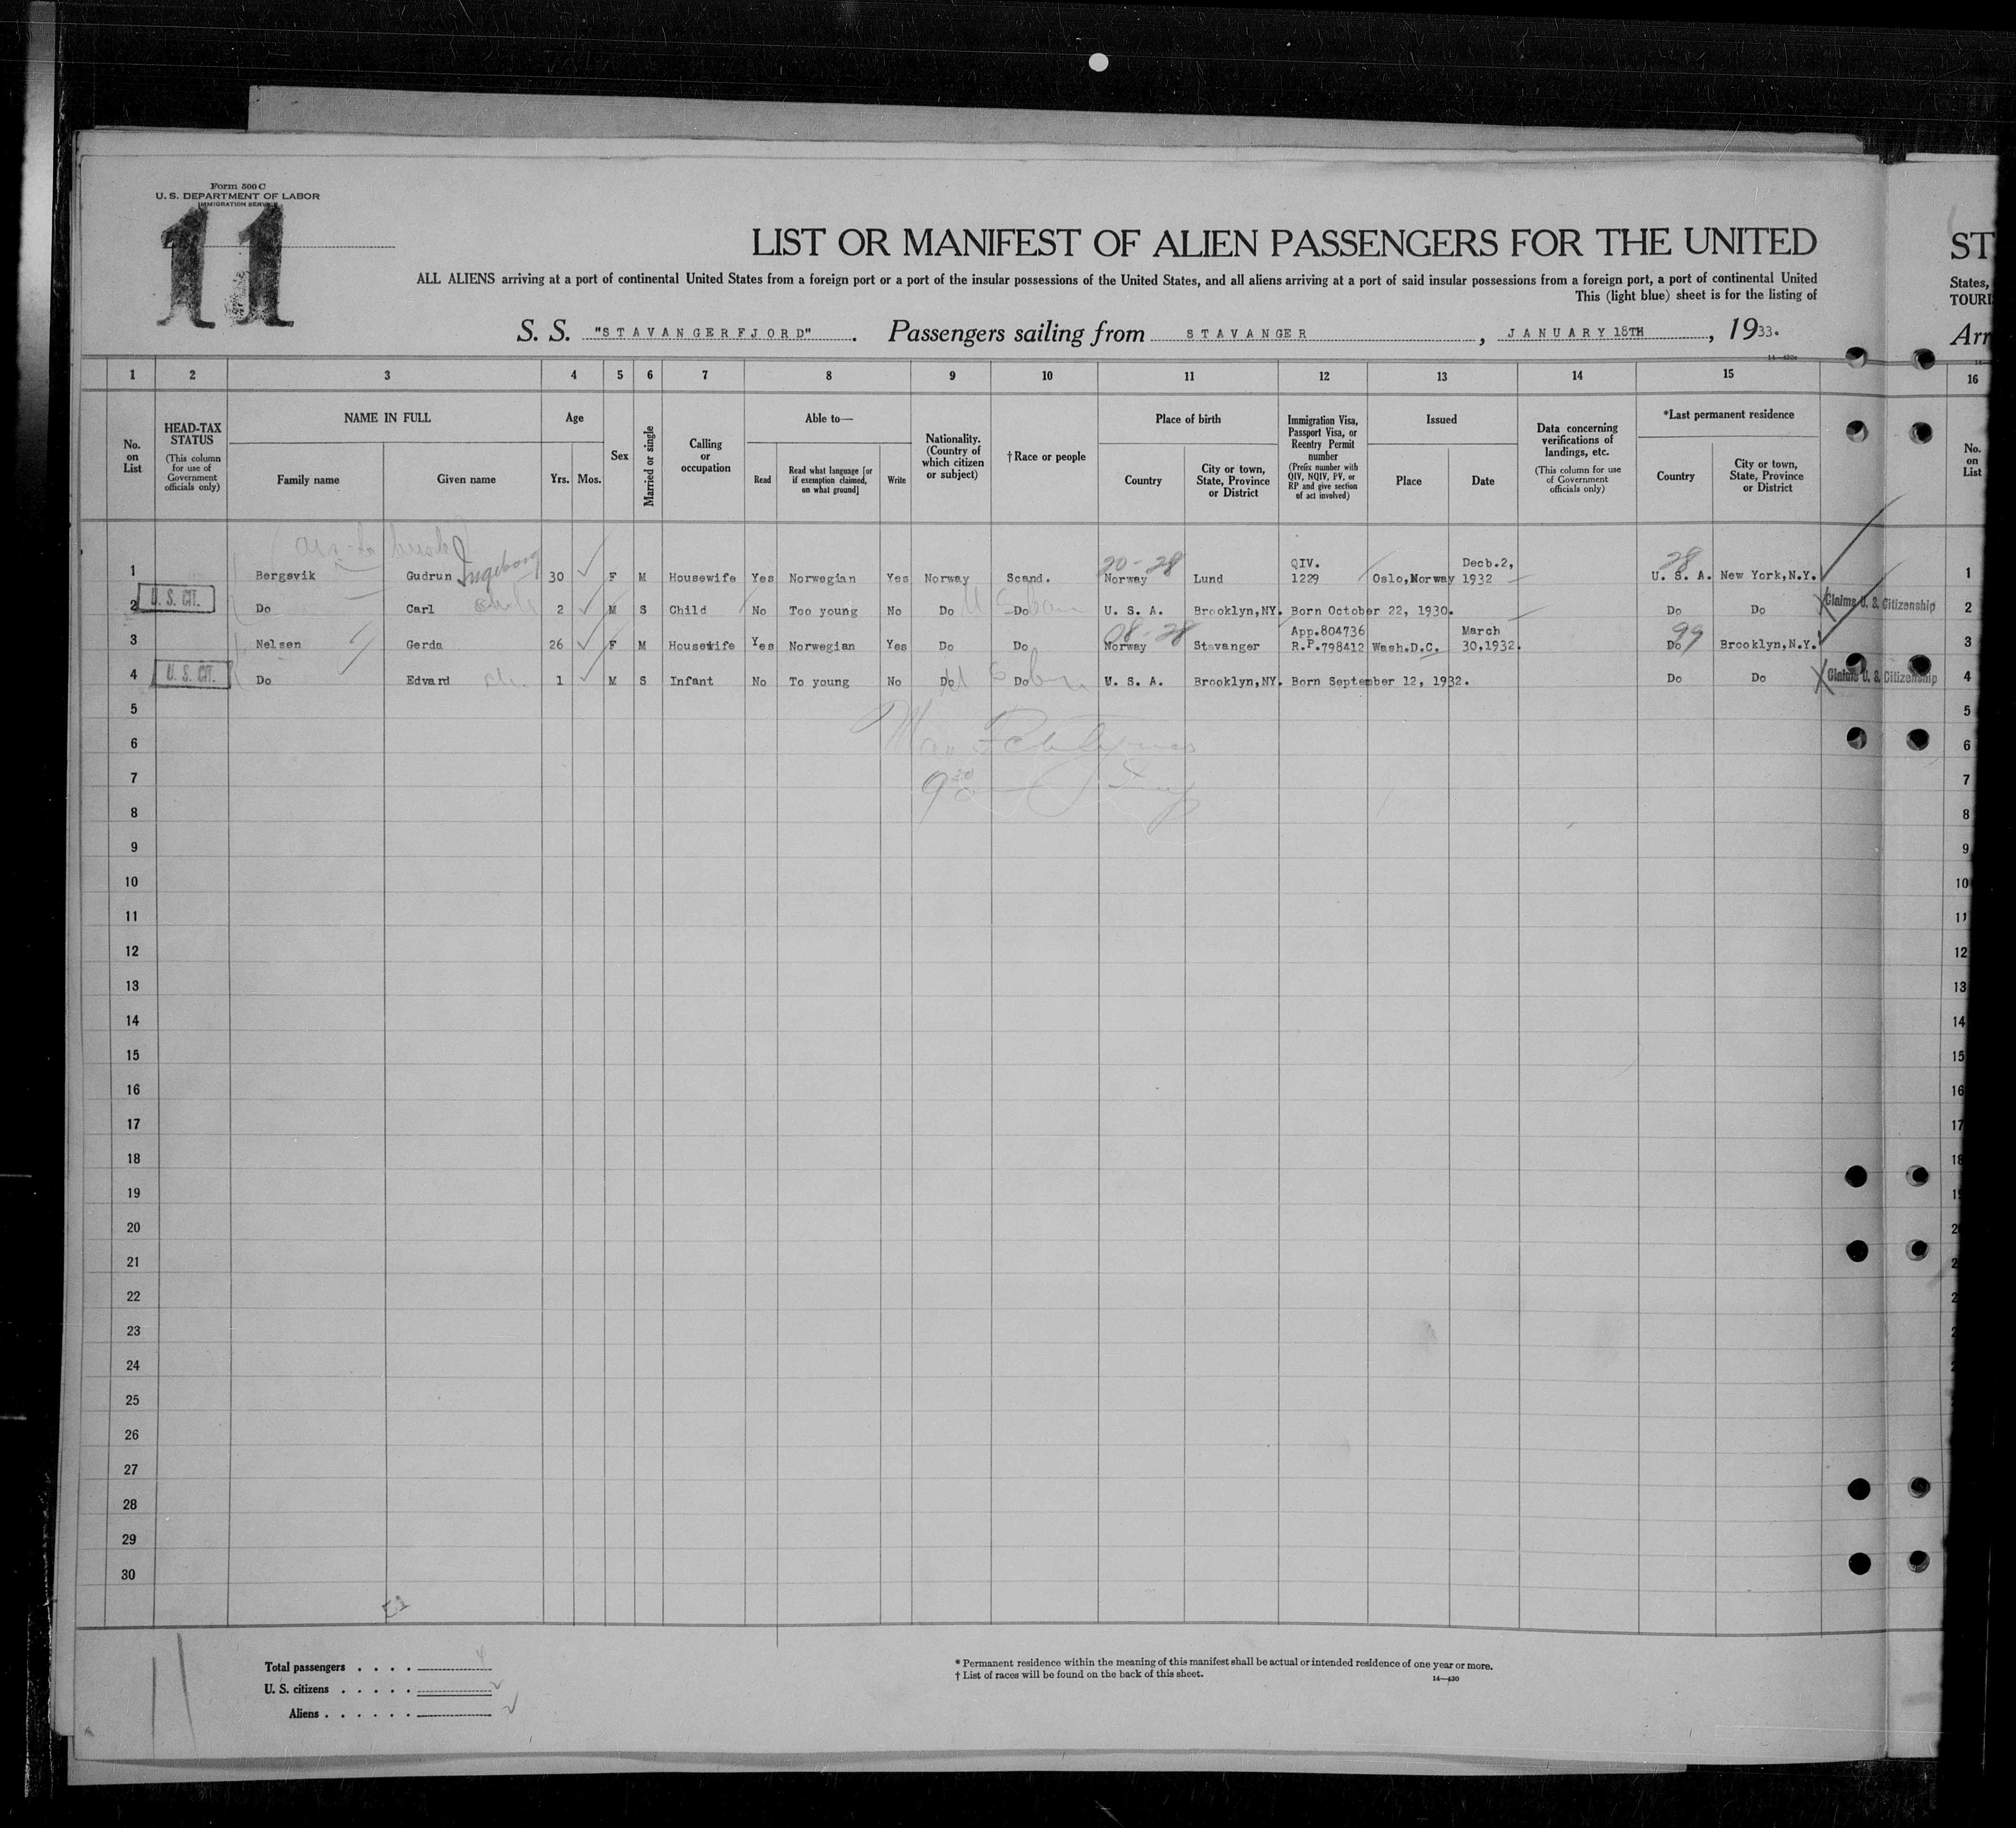 Form 500 C
U. S. DEPARTMENT OF LABOR
IMMIGRATION SERVICE
11
LIST OR MANIFEST OF ALIEN PASSENGERS FOR THE UNITED
ST
ALL ALIENS arriving at a port of continental United States from a foreign port or a port of the insular possessions of the United States, and all aliens arriving at a port of said insular possessions from a foreign port, a port of continental United
States,
This (light blue) sheet is for the listing of
TOURI
S. S. "STAVANGERFJORD". Passengers sailing from STAVANGER, JANUARY 18TH, 1933.
Arr
1 2 3 4 5 6 7 8 9 10 11 12 13 14 15 16
No. on List
HEAD-TAX STATUS
(This column for use of Government officials only)
NAME IN FULL
Family name
Given name
Age
Yrs. Mos.
Sex
Married or single
Calling or occupation
Able to—
Read
Read what language [or if exemption claimed, on what ground]
Write
Nationality. (Country of which citizen or subject)
†Race or people
Place of birth
Country
City or town, State, Province or District
Immigration Visa, Passport Visa, or Reentry Permit number
(Prefix number with QIV, NQIV, PV, or RP and give section of act involved)
Issued
Place
Date
Data concerning verifications of landings, etc.
(This column for use of Government officials only)
*Last permanent residence
Country
City or town, State, Province or District
No. on List
20-28 QIV. Decb.2, 28
1 Bergsvik Gudrun Ingeborg 30 F M Housewife Yes Norwegian Yes Norway Scand. Norway Lund 1229 Oslo,Norway 1932 U. S. A. New York,N.Y. 1
2 U. S. CIT. Do Carl 2 M S Child No Too young No Do Do U. S. A. Brooklyn,NY. Born October 22, 1930. Do Do Claims U. S. Citizenship 2
08-28 App.804736 March 99
3 Nelsen Gerda 26 F M Housewife Yes Norwegian Yes Do Do Norway Stavanger R.P.798412 Wash.D.C. 30,1932. Do Brooklyn,N.Y. 3
4 U. S. CIT. Do Edvard 1 M S Infant No To young No Do Do U. S. A. Brooklyn,NY. Born September 12, 1932. Do Do Claims U. S. Citizenship 4
5 5
6 6
7 7
8 8
9 9
10 10
11 11
12 12
13 13
14 14
15 15
16 16
17 17
18 18
19
20
21
22
23
24
25
26
27
28
29
30
Total passengers . . . . 4
U. S. citizens . . . . . 2
Aliens . . . . . . 2
* Permanent residence within the meaning of this manifest shall be actual or intended residence of one year or more.
† List of races will be found on the back of this sheet.
14—430
11